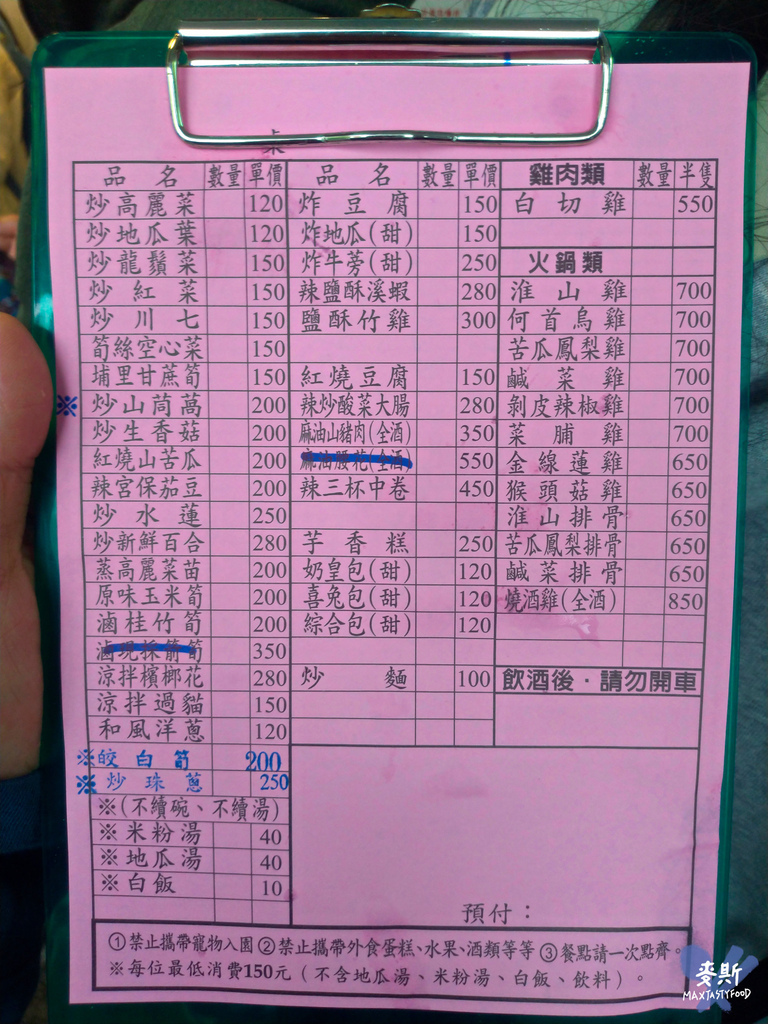 品名 數量 單價
炒高麗菜 120
炒地瓜葉 120
炒龍鬚菜 150
炒紅菜 150
炒川七 150
筍絲空心菜 150
埔里甘蔗筍 150
※ 炒山茼萵 200
炒生香菇 200
紅燒山苦瓜 200
辣宮保茄豆 200
炒水蓮 250
炒新鮮百合 280
蒸高麗菜苗 200
原味玉米筍 200
滷桂竹筍 200
滷現採箭筍 350
涼拌檳榔花 280
涼拌過貓 150
和風洋蔥 120
※皎白筍 200
※炒珠蔥 250
※(不續碗、不續湯)
※米粉湯 40
※地瓜湯 40
※白飯 10
品名 數量 單價
炸豆腐 150
炸地瓜(甜) 150
炸牛蒡(甜) 250
辣鹽酥溪蝦 280
鹽酥竹雞 300
紅燒豆腐 150
辣炒酸菜大腸 280
麻油山豬肉(全酒) 350
麻油腰花(全酒) 550
辣三杯中卷 450
芋香糕 250
奶皇包(甜) 120
喜兔包(甜) 120
綜合包(甜) 120
炒麵 100
預付：
雞肉類 數量 半隻
白切雞 550
火鍋類
淮山雞 700
何首烏雞 700
苦瓜鳳梨雞 700
鹹菜雞 700
剝皮辣椒雞 700
菜脯雞 700
金線蓮雞 650
猴頭菇雞 650
淮山排骨 650
苦瓜鳳梨排骨 650
鹹菜排骨 650
燒酒雞(全酒) 850
飲酒後．請勿開車
①禁止攜帶寵物入園②禁止攜帶外食蛋糕、水果、酒類等等③餐點請一次點齊。
※每位最低消費150元（不含地瓜湯、米粉湯、白飯、飲料）。
麥斯
MAXTASTYFOOD